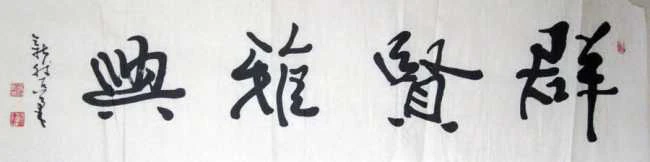 群賢雅興